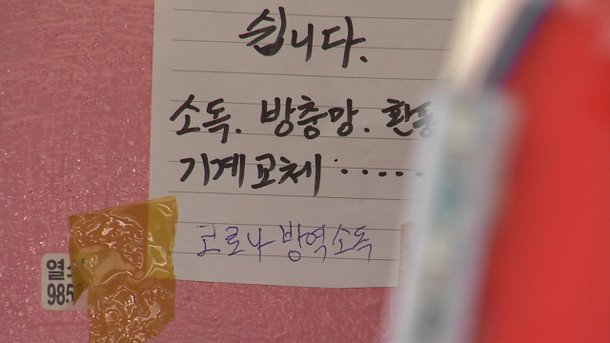 쉽니다.
소독. 방충망. 환풍
기계교체 ......
코로나 방역소독
열쇠
985